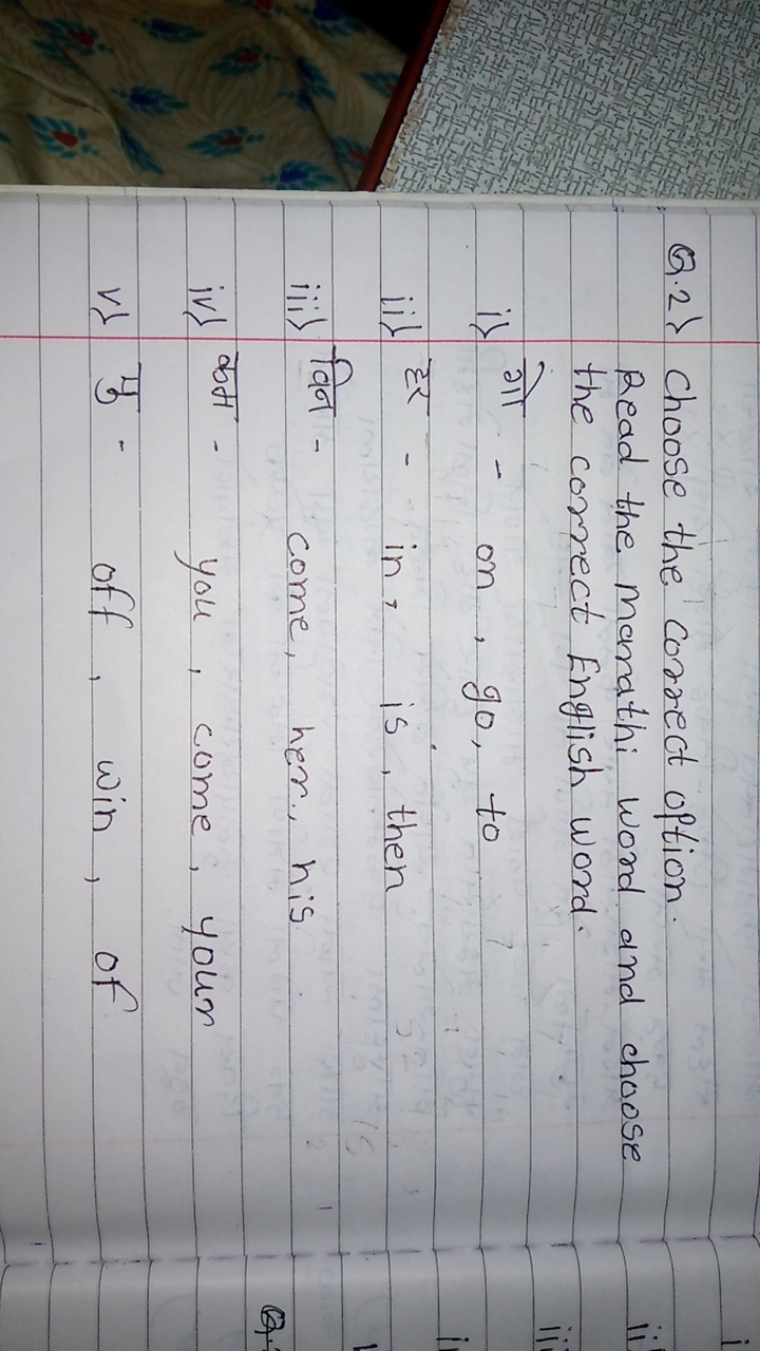 Q.2) Choose the correct option.
Read the marathi word and choose
the correct English word.
i) गो - on, go, to
ii) हर - in, is, then
iii) विन - come, her, his
iv) कम - you, come, your
v) यु - off, win, of
i
ii
iii
i
Q.